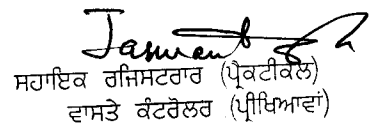 Jaswant
ਸਹਾਇਕ ਰਜਿਸਟਰਾਰ (ਪ੍ਰੈਕਟੀਕਲ)
ਵਾਸਤੇ ਕੰਟਰੋਲਰ (ਪ੍ਰੀਖਿਆਵਾਂ)